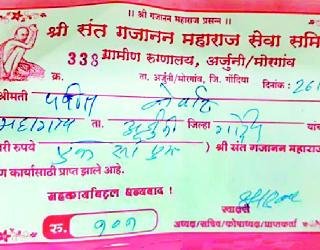 || श्री गजानन महाराज प्रसन्न ||
श्री संत गजानन महाराज सेवा समि
338 ग्रामीण रुग्णालय, अर्जुनी/मोरगांव
क्र. ता. अर्जुनी/मोरगांव, जि. गोंदिया दिनांक : 26
श्रीमती
ता. अर्जुनी जिल्हा यांच
री रुपये एक श्री संत गजानन महाराज
ण कार्यासाठी प्राप्त झाले आहे.
सहकार्याबद्दल धन्यवाद !
रु. १०१
स्वाक्षरी
अध्यक्ष/सचिव/कोषाध्यक्ष/प्राप्तकर्ता